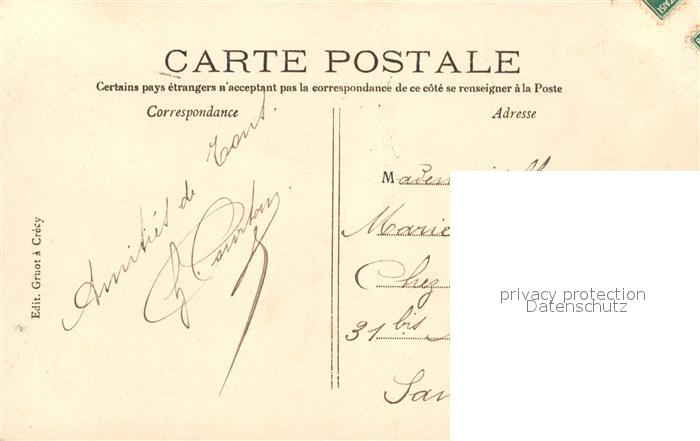 CARTE POSTALE
Certains pays étrangers n'acceptant pas la correspondance de ce côté se renseigner à la Poste
Correspondance
Adresse
Amitiés de Tous.
Edit. Gruot à Crécy
Marie
Chez
31 bis
privacy protection
Datenschutz